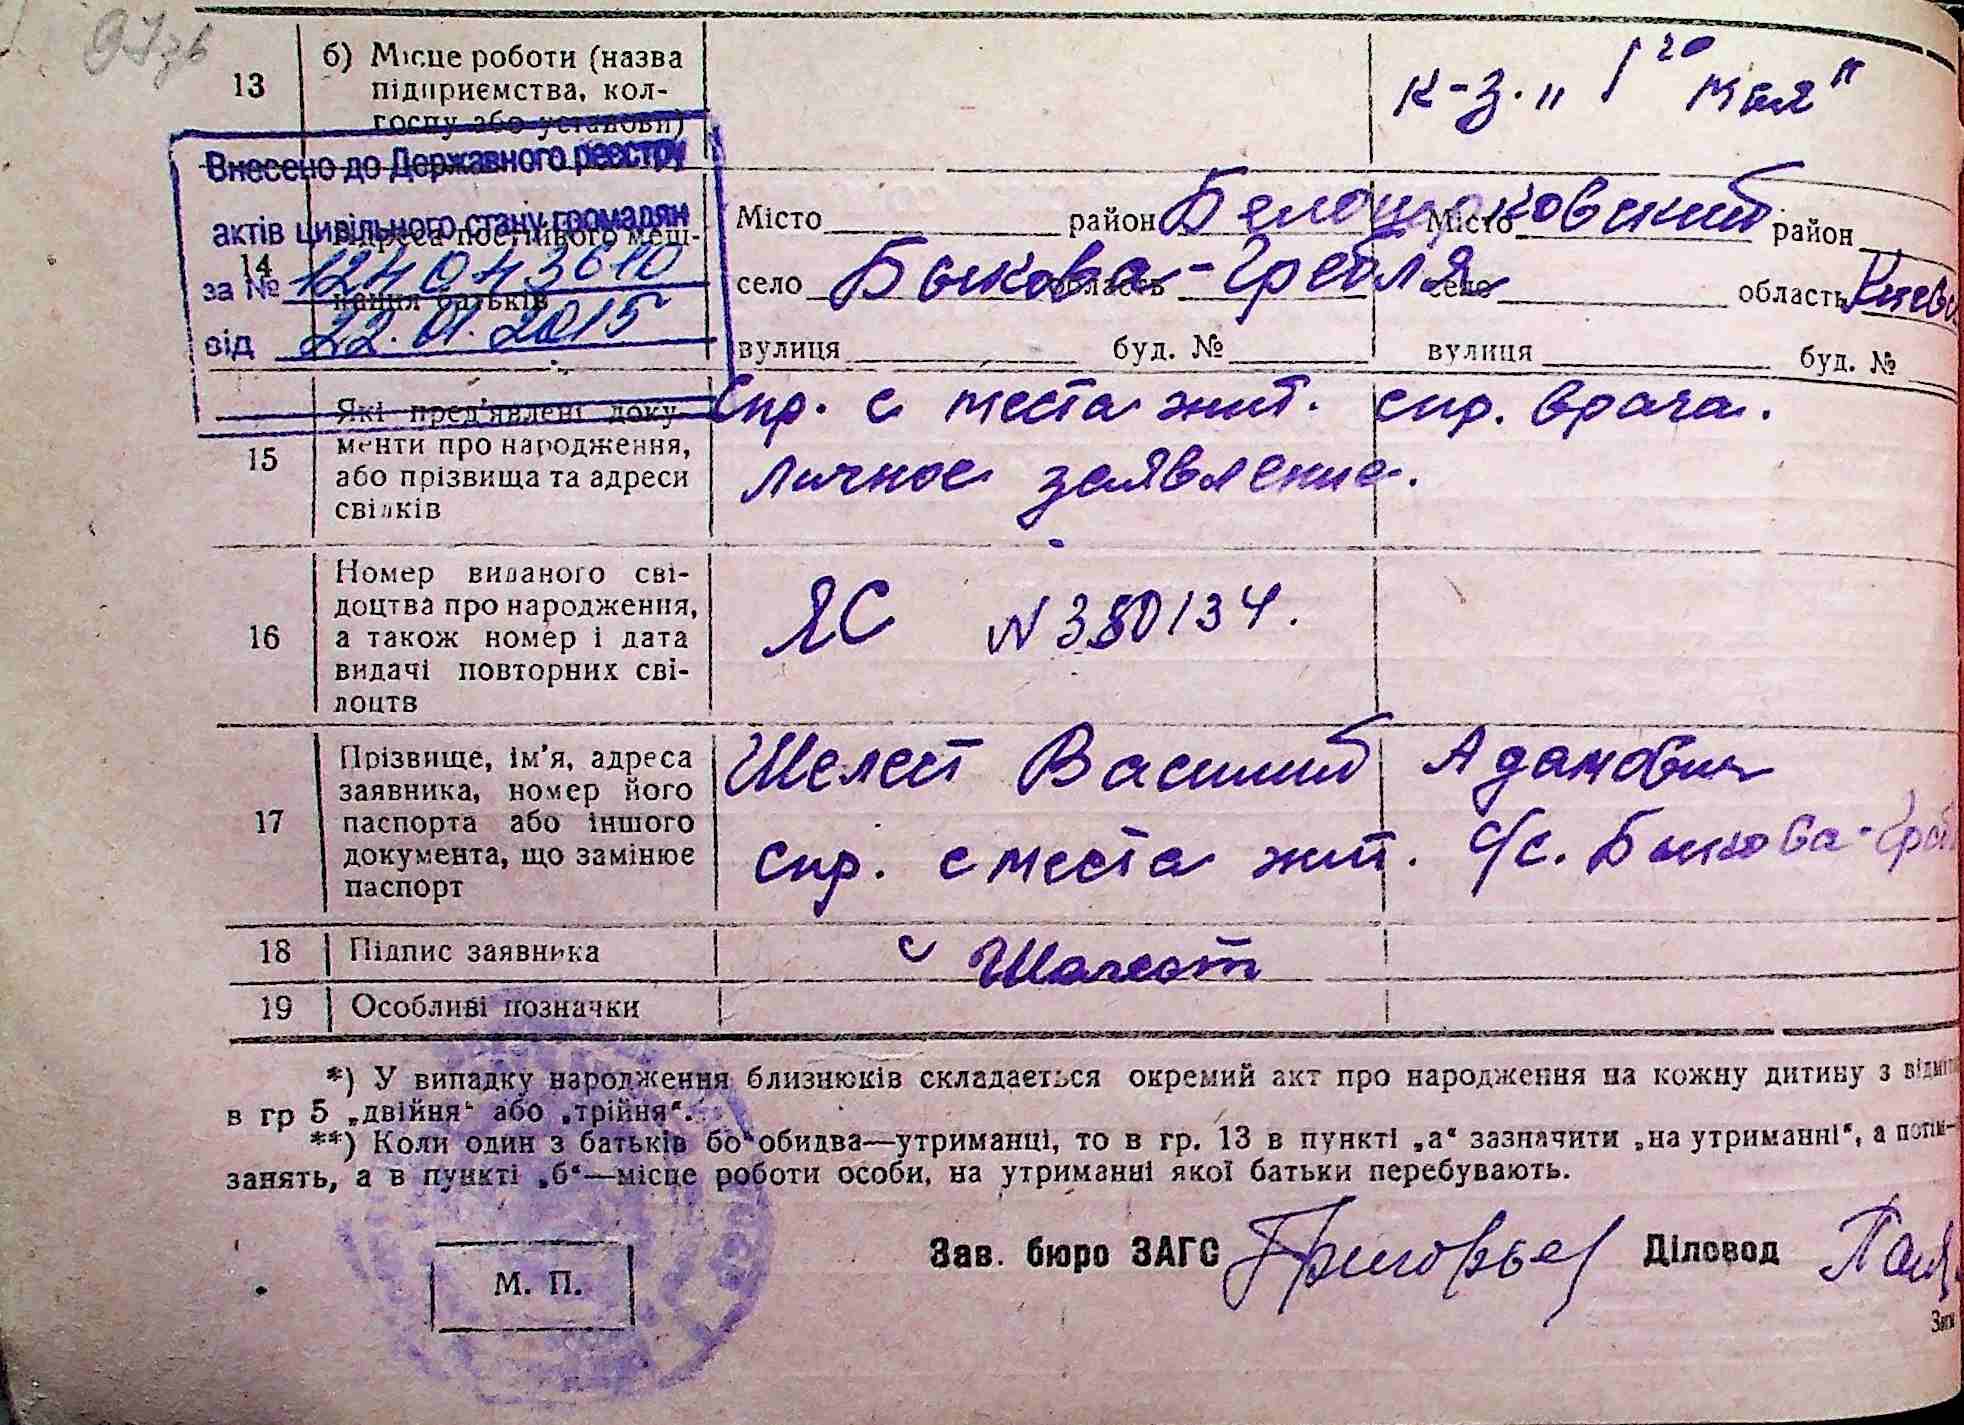 13
б) Місце роботи (назва
підприємства, кол-
госпу або установи)
к-з. „ 1го мая"
Внесено до Державного реєстру
актів цивільного стану громадян
за № 124043610
від 22.01.2015
14
Адреса постійного меш-
кання батьків
Місто район Белоцерковский Місто район
село Быкова-Гребля область село область Киевс
вулиця буд. № вулиця буд. №
15
Які пред'явлені доку-
менти про народження,
або прізвища та адреси
свідків
Спр. с места жит. спр. врача.
личное заявление.
16
Номер виданого сві-
доцтва про народження,
а також номер і дата
видачі повторних сві-
доцтв
ЯС N 380134.
17
Прізвище, ім'я, адреса
заявника, номер його
паспорта або іншого
документа, що замінює
паспорт
Шелест Василий Адамович
спр. с места жит. с/с. Быкова-Греб
18 Підпис заявника
Шелест
19 Особливі позначки
*) У випадку народження близнюків складається окремий акт про народження на кожну дитину з відміт
в гр 5 „двійня" або „трійня".
**) Коли один з батьків бо обидва—утриманці, то в гр. 13 в пункті „а" зазначити „на утриманні", а потім—
занять, а в пункті „б"—місце роботи особи, на утриманні якої батьки перебувають.
Зав. бюро ЗАГС Григорьев Діловод
М. П.